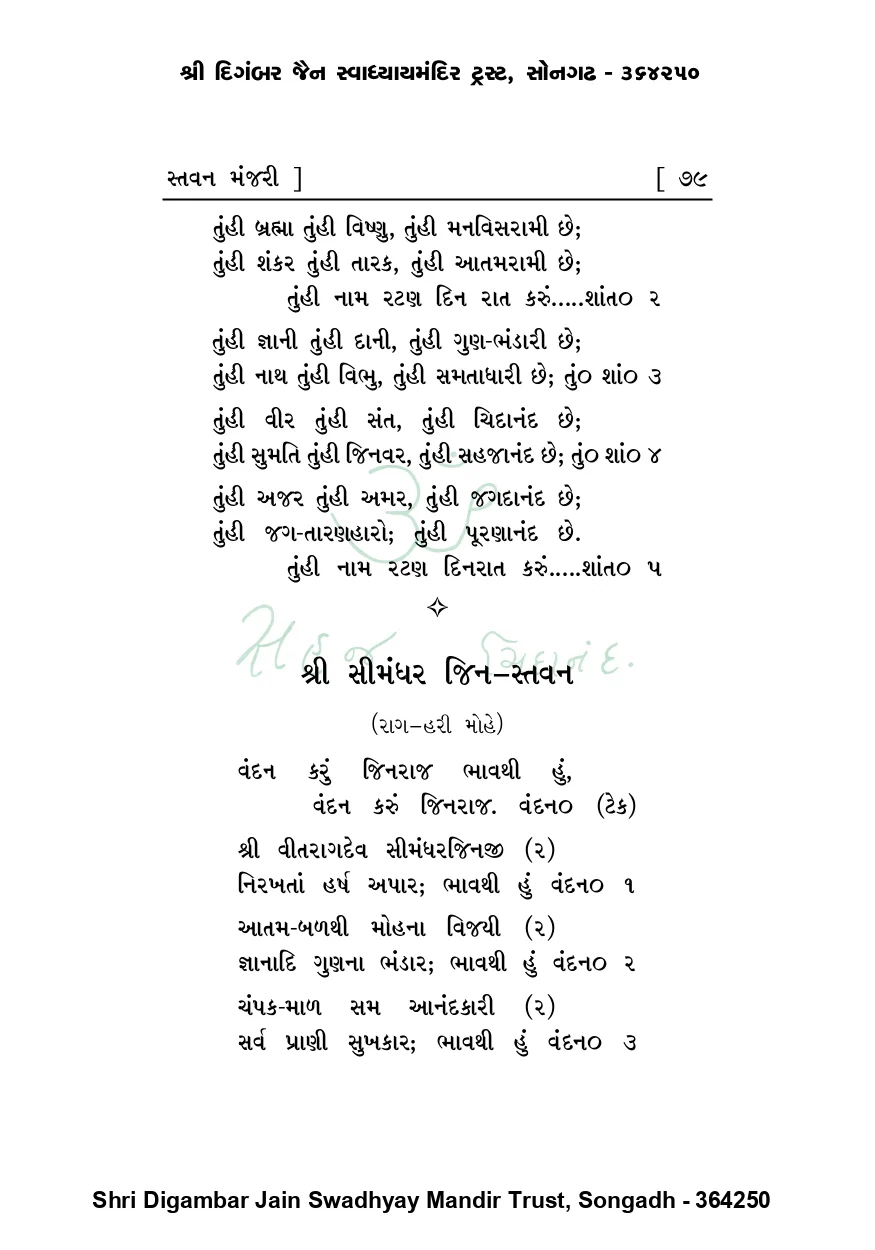 શ્રી દિગંબર જૈન સ્વાધ્યાયમંદિર ટ્રસ્ટ, સોનગઢ - ૩૬૪૨૫૦
સ્તવન મંજરી ] [ ૭૯
તુંહી બ્રહ્મા તુંહી વિષ્ણુ, તુંહી મનવિસરામી છે;
તુંહી શંકર તુંહી તારક, તુંહી આતમરામી છે;
તુંહી નામ રટણ દિન રાત કરું.....શાંત૦ ૨
તુંહી જ્ઞાની તુંહી દાની, તુંહી ગુણ-ભંડારી છે;
તુંહી નાથ તુંહી વિભુ, તુંહી સમતાધારી છે; તું૦ શાં૦ ૩
તુંહી વીર તુંહી સંત, તુંહી ચિદાનંદ છે;
તુંહી સુમતિ તુંહી જિનવર, તુંહી સહજાનંદ છે; તું૦ શાં૦ ૪
તુંહી અજર તુંહી અમર, તુંહી જગદાનંદ છે;
તુંહી જગ-તારણહારો; તુંહી પૂરણાનંદ છે.
તુંહી નામ રટણ દિનરાત કરું.....શાંત૦ ૫
ૐ
સહજ ચિદાનંદ.
શ્રી સીમંધર જિન–સ્તવન
(રાગ–હરી મોહે)
વંદન કરું જિનરાજ ભાવથી હું,
વંદન કરું જિનરાજ. વંદન૦ (ટેક)
શ્રી વીતરાગદેવ સીમંધરજિનજી (૨)
નિરખતાં હર્ષ અપાર; ભાવથી હું વંદન૦ ૧
આતમ-બળથી મોહના વિજયી (૨)
જ્ઞાનાદિ ગુણના ભંડાર; ભાવથી હું વંદન૦ ૨
ચંપક-માળ સમ આનંદકારી (૨)
સર્વ પ્રાણી સુખકાર; ભાવથી હું વંદન૦ ૩
Shri Digambar Jain Swadhyay Mandir Trust, Songadh - 364250